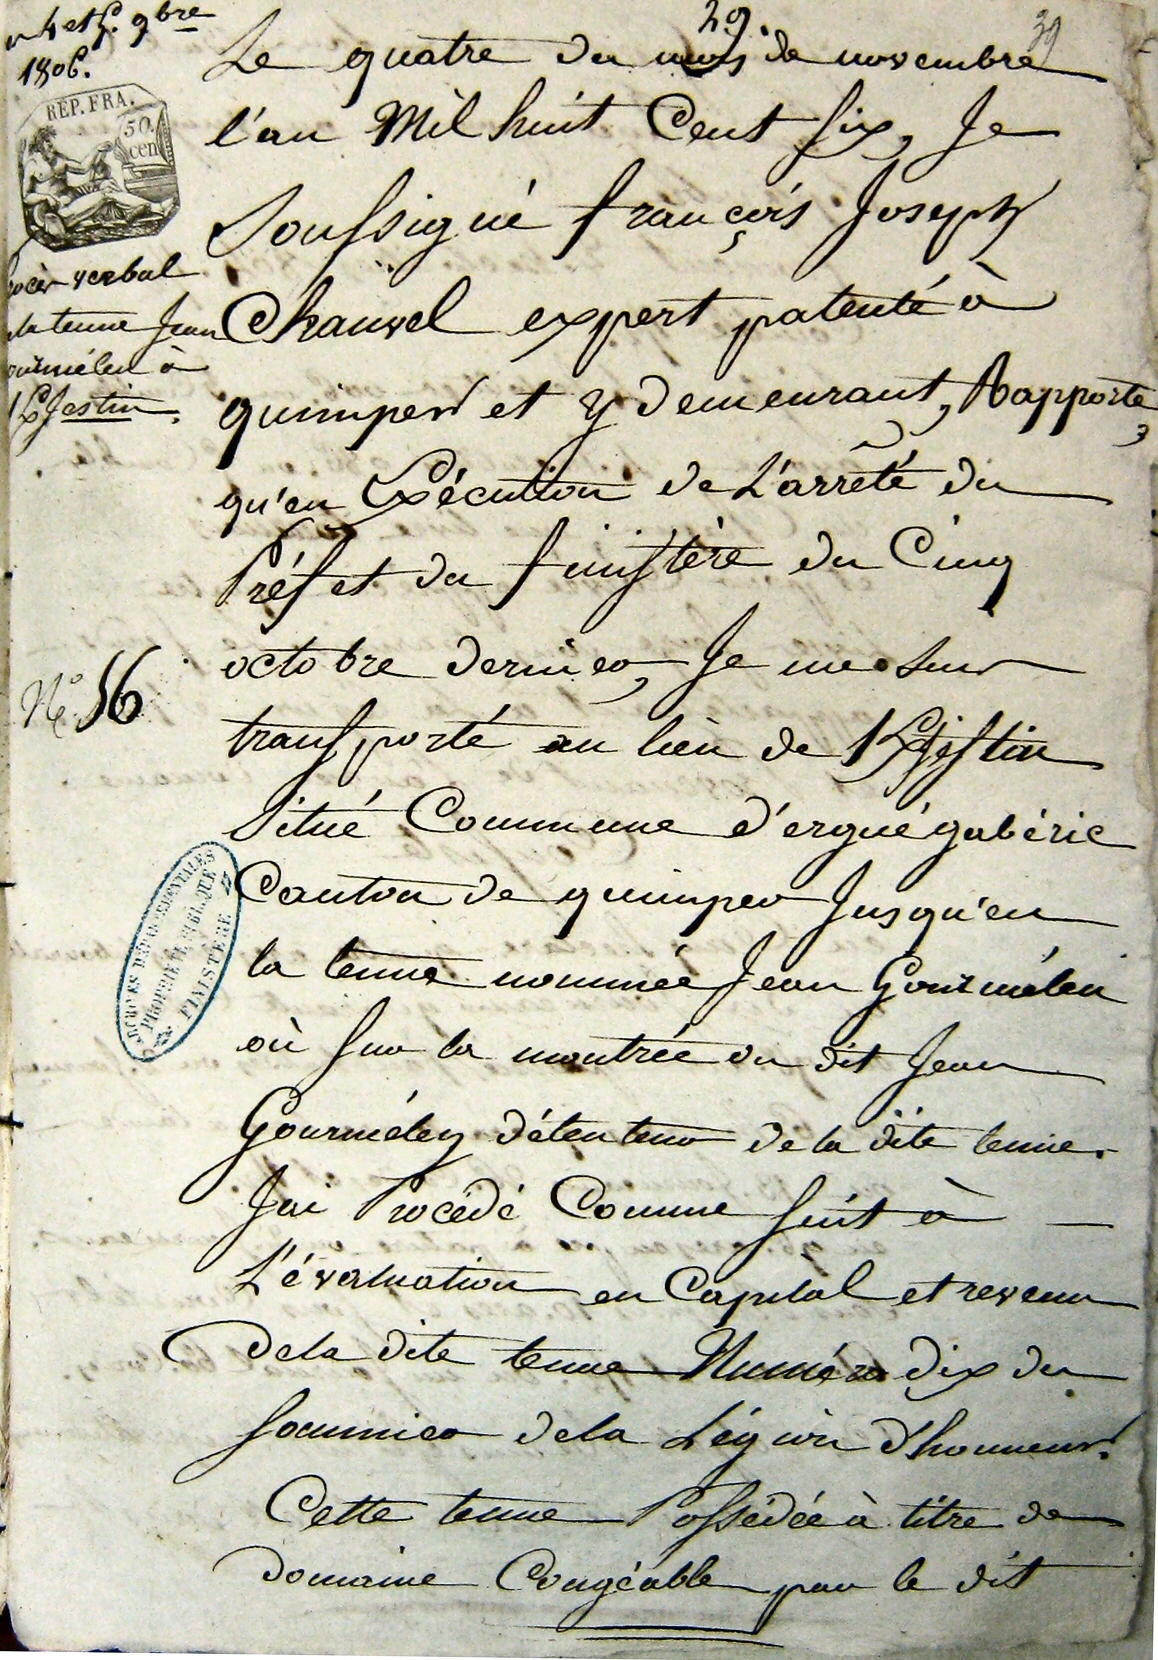 4 et 5. 9bre
1806.
29.
39
REP. FRA.
50.
cen
verbal
la tenue Jean
à
K/Jestin.
N° 56
Le quatre du mois de novembre
l'an Mil huit Cent six, Je
Soussigné françois Joseph
Chauvel expert patenté à
quimper et y demeurant, Rapporte,
qu'en Exécution de L'arrêté du
Préfet du finistère du Cinq
octobre dernier, Je me suis
transporté au lieu de K/jestin
Situé Commune d'ergué gabéric
Canton de quimper Jusqu'en
la tenue nommée Jean Gourmélen
où sur la montrée du dit Jean
Gourmélen détenteur de la dite tenue.
J'ai Procédé Comme suit à
L'évaluation en Capital et revenu
de la dite tenue Numéro dix du
sommier de la Légion d'honneur.
Cette tenue Possédée à titre de
domaine Congéable par le dit
ARCHIVES DÉPARTEMENTALES
PROPRIÉTÉ PUBLIQUE
FINISTÈRE